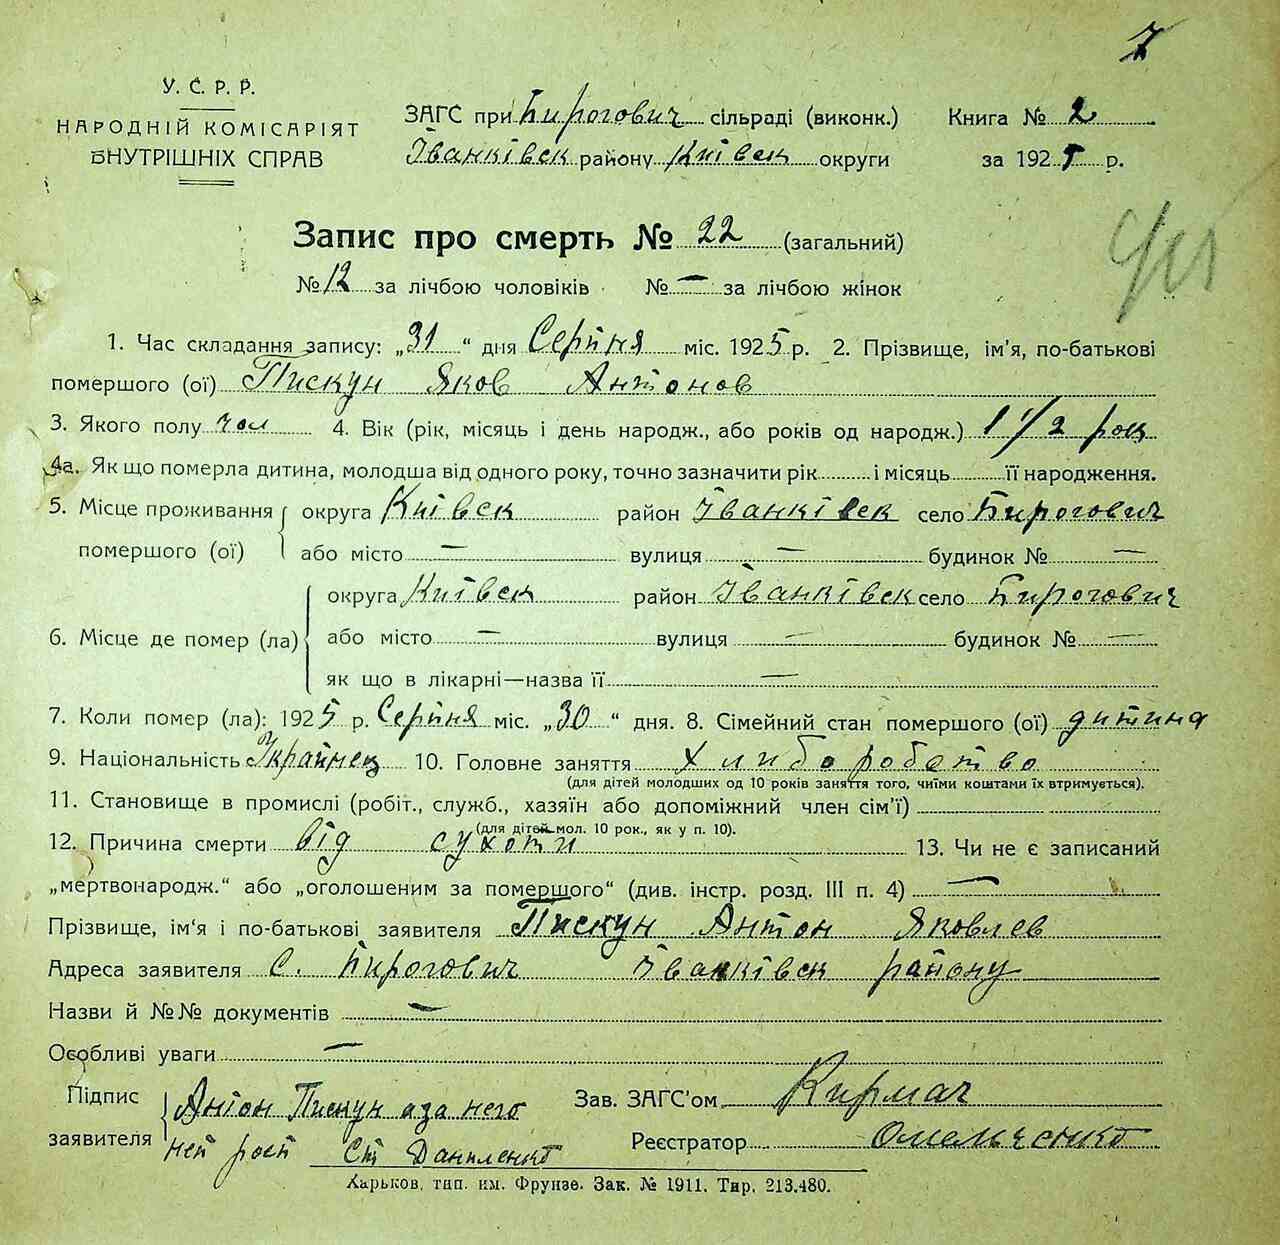 7
У. С. Р. Р.
НАРОДНІЙ КОМІСАРІЯТ
ВНУТРІШНІХ СПРАВ
ЗАГС при Бирогович сільраді (виконк.)
Іванківск району Київск округи
Книга № 2
за 1925 р.
Запис про смерть № 22 (загальний)
№ 12 за лічбою чоловіків № — за лічбою жінок
1. Час складання запису: „31“ дня Серпня міс. 1925 р. 2. Прізвище, ім’я, по-батькові
помершого (ої) Пискун Яков Антонов
3. Якого полу чол 4. Вік (рік, місяць і день народж., або років од народж.) 1 1/2 рок
4а. Як що померла дитина, молодша від одного року, точно зазначити рік і місяць її народження.
5. Місце проживання помершого (ої) округа Київск район Іванківск село Бирогович
або місто — вулиця — будинок № —
6. Місце де помер (ла) округа Київск район Іванківск село Бирогович
або місто — вулиця — будинок № —
як що в лікарні—назва її —
7. Коли помер (ла): 1925 р. Серпня міс. „30“ дня. 8. Сімейний стан помершого (ої) дитина
9. Національність Українец 10. Головне заняття хлиборобство
(для дітей молодших од 10 років заняття того, чиїми коштами їх втримується).
11. Становище в промислі (робіт., служб., хазяїн або допоміжний член сім’ї)
(для дітей мол. 10 рок., як у п. 10).
12. Причина смерти від сухоти 13. Чи не є записаний
„мертвонародж.“ або „оголошеним за помершого“ (див. інстр. розд. III п. 4) —
Прізвище, ім’я і по-батькові заявителя Пискун Антон Яковлев
Адреса заявителя С. Бирогович Іванківск району
Назви й №№ документів —
Особливі уваги —
Підпис заявителя Антон Пискун аза него
нет рост Ст Даниленко
Зав. ЗАГС’ом Кирмач
Реєстратор Омельченко
Харьков, тип. им. Фрунзе. Зак. № 1911. Тир. 213.480.